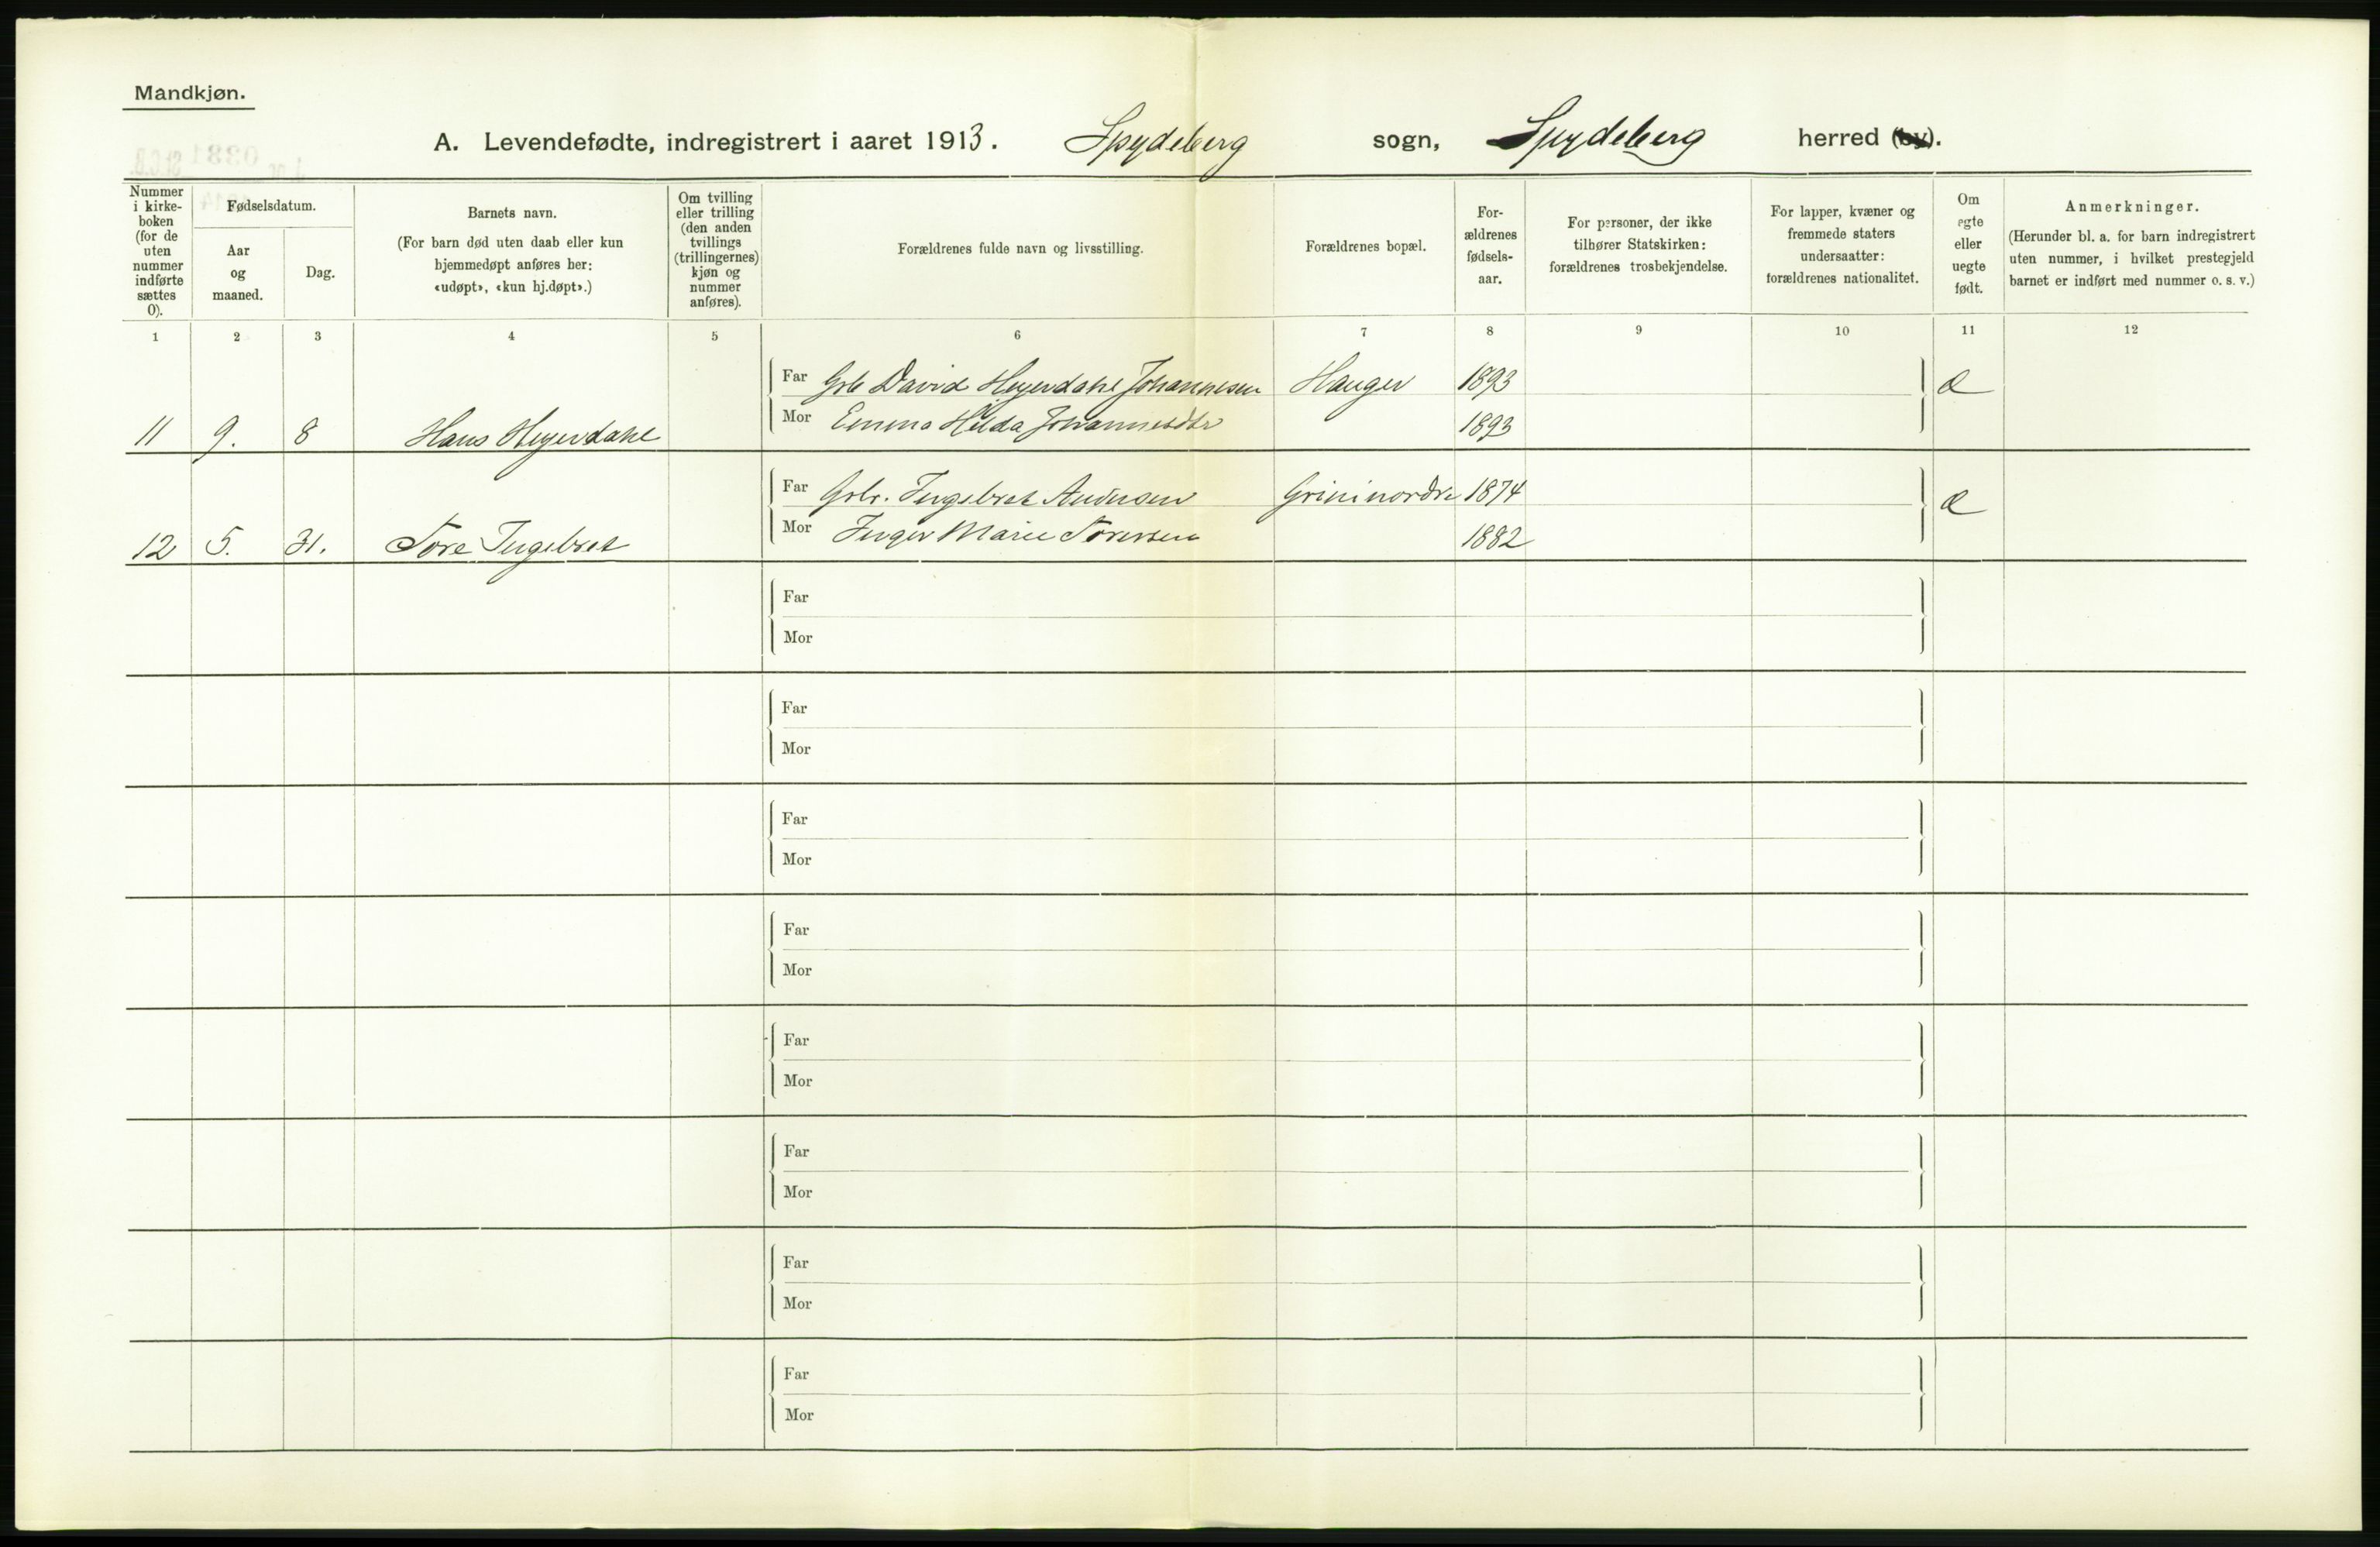 Mandkjøn.
A. Levendefødte, indregistrert i aaret 1913. Spydeberg sogn, Spydeberg herred (by).
Nummer i kirke-boken (for de uten nummer indførte sættes 0).
Fødselsdatum.
Aar og maaned.
Dag.
Barnets navn.
(For barn død uten daab eller kun hjemmedøpt anføres her: «udøpt», «kun hj.døpt».)
Om tvilling eller trilling (den anden tvillings (trillingernes) kjøn og nummer anføres).
Forældrenes fulde navn og livsstilling.
Forældrenes bopæl.
For-ældrenes fødsels-aar.
For personer, der ikke tilhører Statskirken: forældrenes trosbekjendelse.
For lapper, kvæner og fremmede staters undersaatter: forældrenes nationalitet.
Om egte eller uegte født.
Anmerkninger.
(Herunder bl. a. for barn indregistrert uten nummer, i hvilket prestegjeld barnet er indført med nummer o. s. v.)
1 2 3 4 5 6 7 8 9 10 11 12
Far Grb David Heyerdahl Johannesen Hauger 1893 æ
11 9. 8 Hans Heyerdahl Mor Emma Hilda Johannesdtr 1893
Far Grbr. Ingebret Andersen Grini nordre 1874 æ
12 5. 31. Tore Ingebret Mor Inger Marie Toresen 1882
Far
Mor
Far
Mor
Far
Mor
Far
Mor
Far
Mor
Far
Mor
Far
Mor
Far
Mor